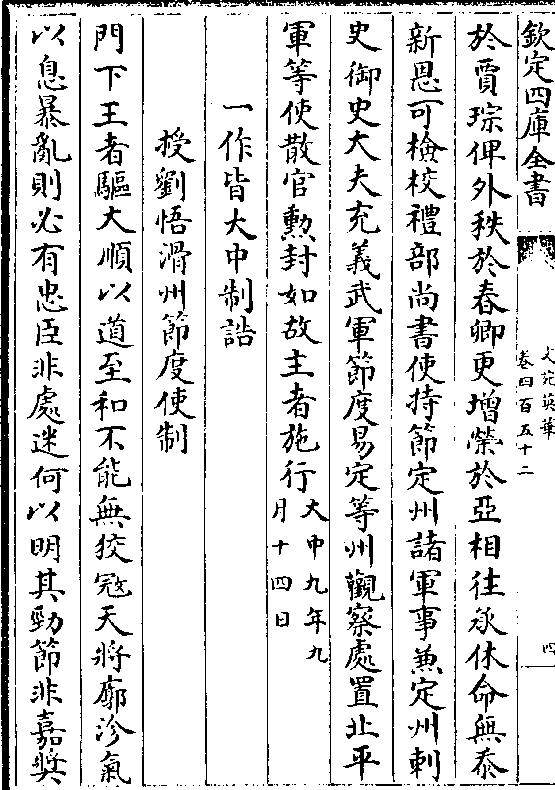 欽定四庫全書
文苑英華
卷四百五十二
四
於賈琮俾外秩於春卿更增榮於亞相往承休命無忝
新恩可檢校禮部尚書使持節定州諸軍事兼定州刺
史御史大夫充義武軍節度易定等州觀察處置北平
軍等使散官勲封如故主者施行大中九年九
月十四日
一作皆大中制誥
授劉悟滑州節度使制
門下王者驅大順以道至和不能無狡冦天將廓沴氣
以息暴亂則必有忠臣非處迷何以明其勁節非嘉奬